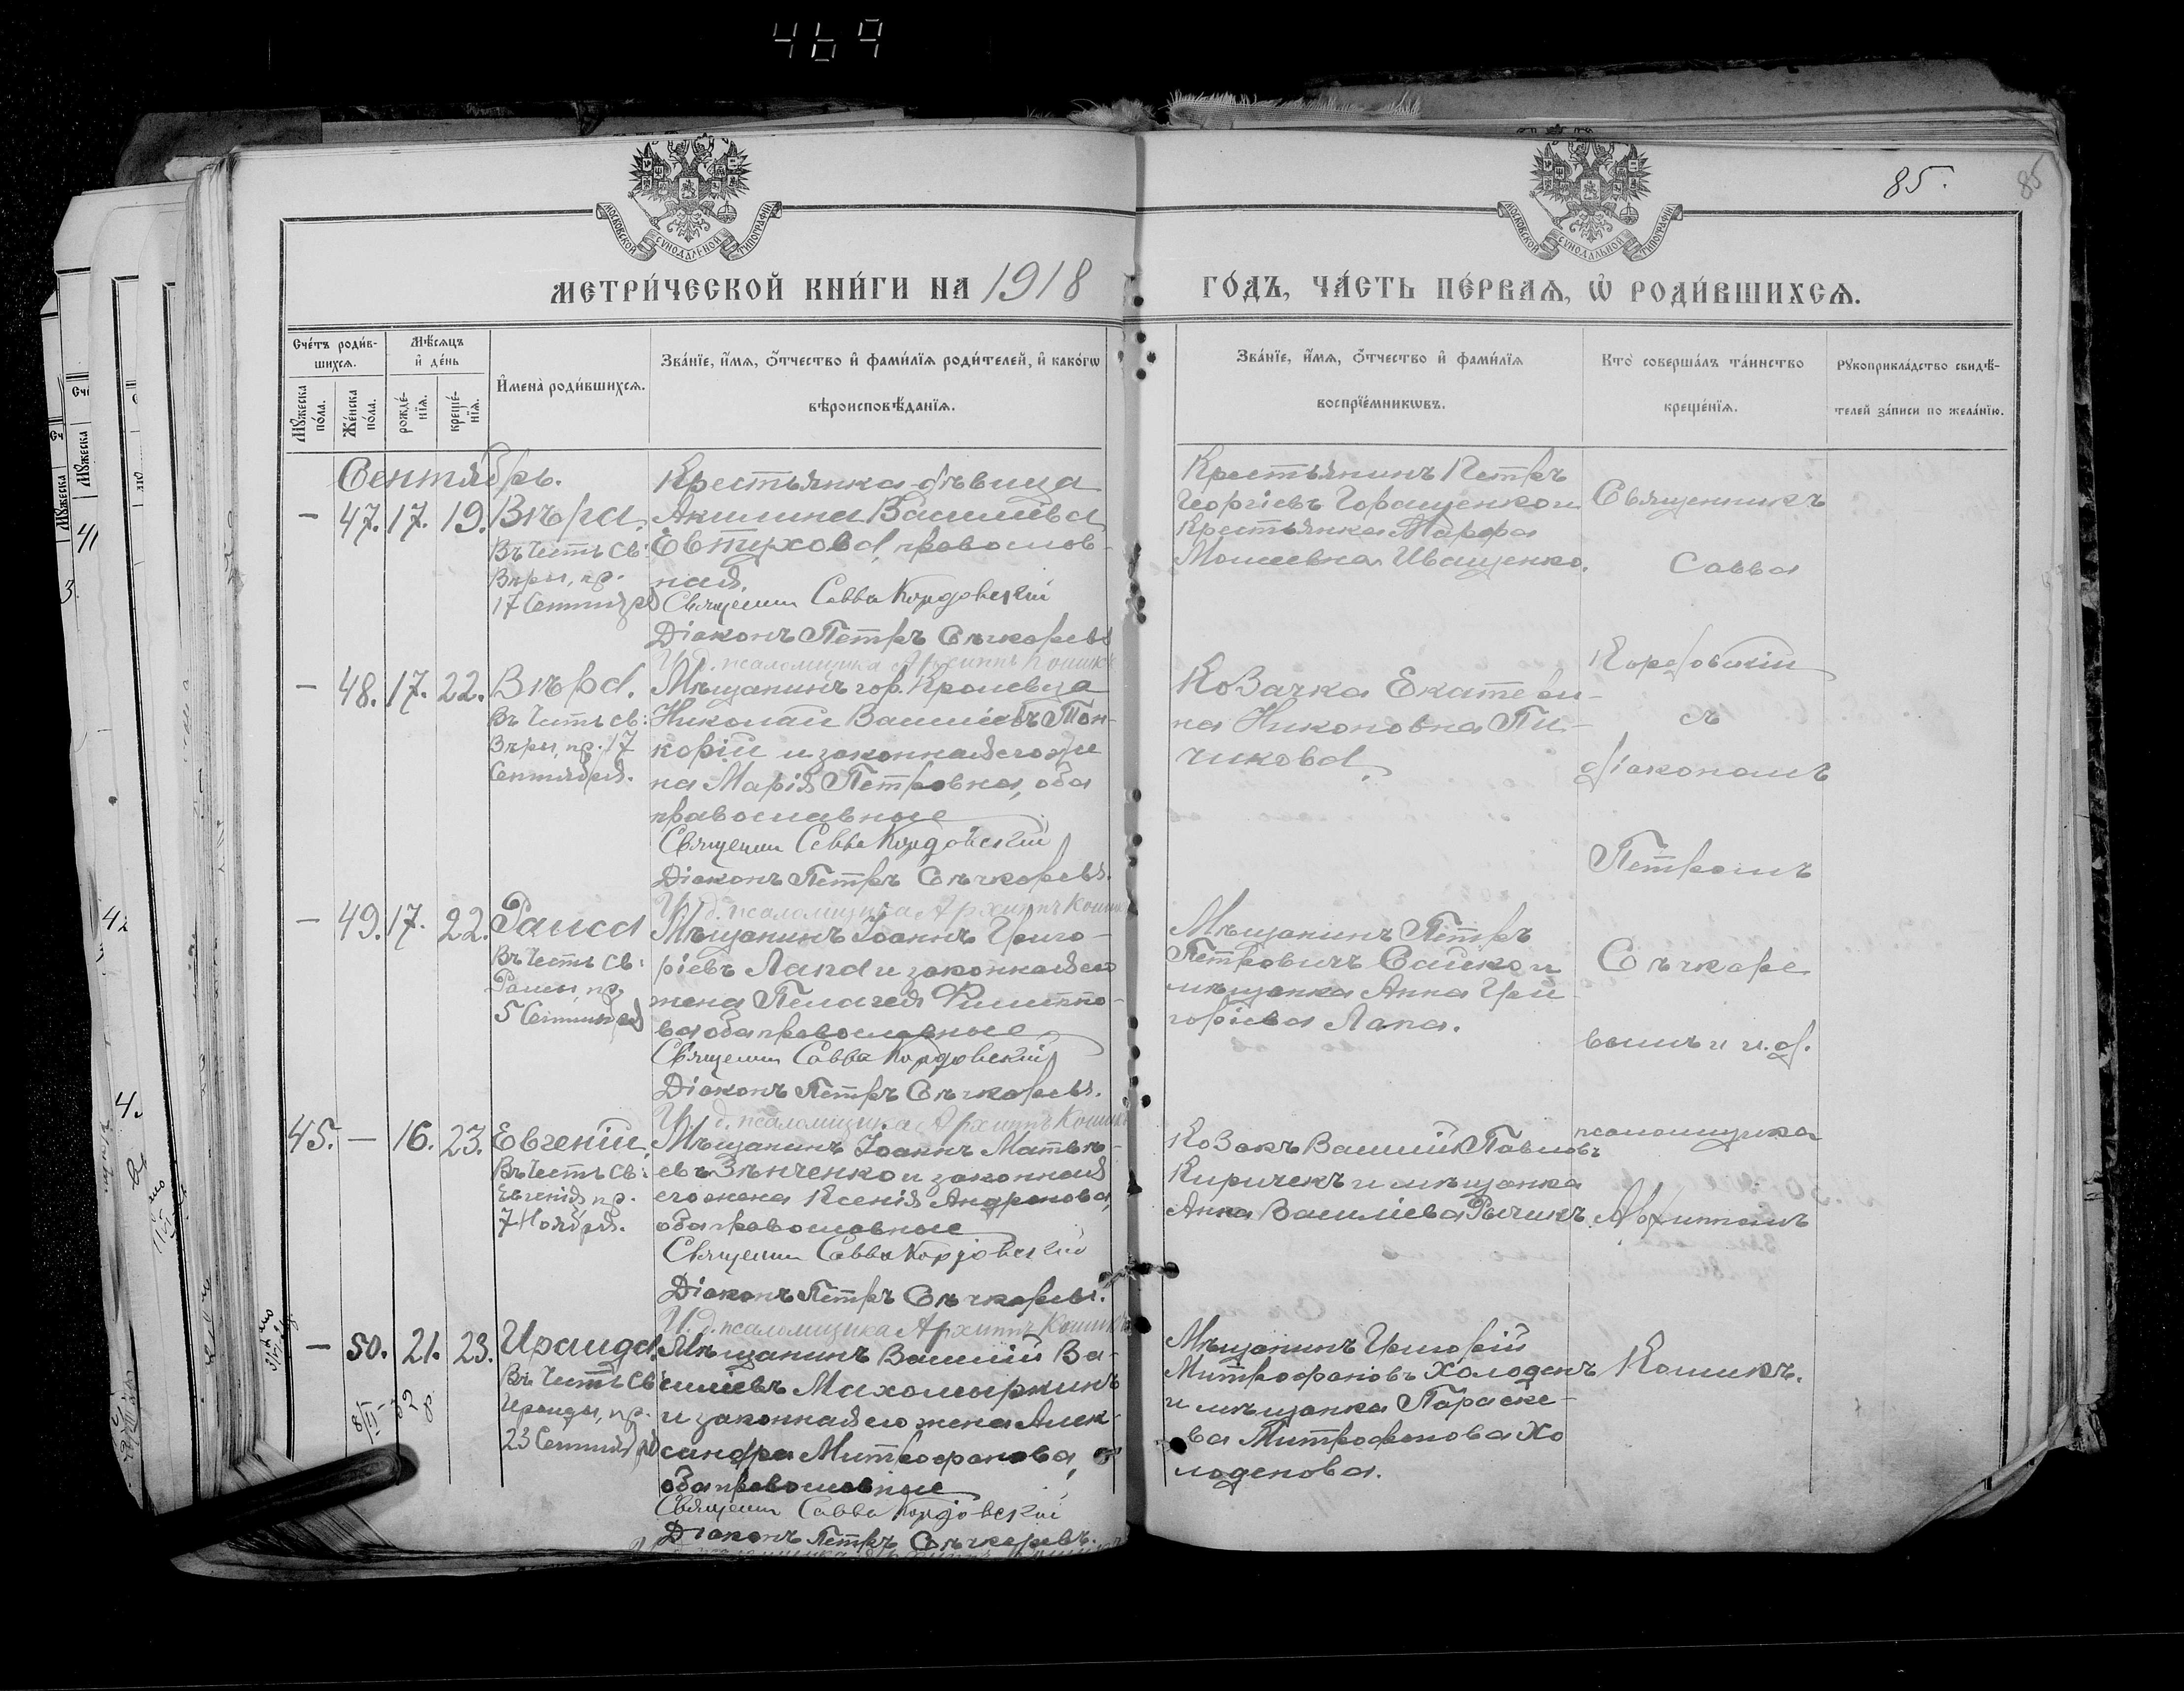 469
85.
85
МОСКОВСКОЙ СУНОДАЛЬНОЙ ТИПОГРАФІИ
МОСКОВСКОЙ СУНОДАЛЬНОЙ ТИПОГРАФІИ
МЕТРИ́ЧЕСКОЙ КНИ́ГИ НА 1918
ГО́ДЪ, ЧА́СТЬ ПЕ́РВАѦ, Ѽ РОДИ́ВШИХСѦ.
Сче́тъ роди́в-
шихсѧ.
Мꙋ́жеска по́ла.
Же́нска по́ла.
Мѣ́сѧцъ
и҆ де́нь
рожде́-
нїѧ.
креще́-
нїѧ.
И҆мена̀ роди́вшихсѧ.
Зва́нїе, и҆́мѧ, ѻ҆́тчество и҆ фами́лїѧ роди́телей, и҆ како́гѡ
вѣроисповѣ́данїѧ.
Зва́нїе, и҆́мѧ, ѻ҆́тчество и҆ фами́лїѧ
воспрїе́мникѡвъ.
Кто̀ соверша́лъ та́инство
креще́нїѧ.
Рꙋкоприкла́дство свидѣ́-
телей за́писи по жела́нїю.
Сентябрь.
— 47. 17. 19. Вѣра.
Въ честь св:
Вѣры, пр.
17 Сентября
Крестьянка-дѣвица
Акилина Васильева
Евтухова, православ-
ная.
Священ. Савва Кордовскій
Діаконъ Петръ Сѣчкаревъ
И. д. псаломщика Архиппъ Кошикъ
Крестьянинъ Петръ
Георгіевъ Горащенко и
Крестьянка Марфа
Моисеевна Иващенко.
— 48. 17. 22. Вѣра.
Въ честь св:
Вѣры, пр. 17
Сентября.
Мѣщанинъ гор. Кролевца
Николай Васильевъ Тон-
корій и законная его же
на Марія Петровна, оба
православные
Священ. Савва Кордовскій
Діаконъ Петръ Сѣчкаревъ.
И. д. псаломщика Архиппъ Кошик
Козачка Екатери-
на Никоновна Пи-
чикова.
— 49. 17. 22. Раиса
Въ честь св:
Раисы, пр.
5 Сентября
Мѣщанинъ Іоаннъ Григо-
ріевъ Лапа и законная его
жена Пелагея Филиппо-
ва оба православные
Священ. Савва Кордовскій
Діаконъ Петръ Сѣчкаревъ.
И. д. псаломщика Архиппъ Кошик
Мѣщанинъ Петръ
Петровичъ Сайко и
мѣщанка Анна Гри-
горіева Лапа.
45. — 16. 23. Евгеній.
Въ честь св:
Евгенія пр.
7 Ноября.
Мѣщанинъ Іоаннъ Матвѣ-
евъ Зѣнченко и законная
его жена Ксенія Андронова,
оба православные
Священ. Савва Кордовскій
Діаконъ Петръ Сѣчкаревъ.
И. д. псаломщика Архиппъ Кошикъ
Козакъ Василій Павловъ
Киричекъ и мѣщанка
Анна Васильева Рычикъ.
— 50. 21. 23. Ираида.
Въ честь св
Ираиды, пр.
23 Сентября
Мѣщанинъ Василій Ва-
сильевъ Махомыркинъ
и законная его жена Алек-
сандра Митрофанова,
оба православные
Священ. Савва Кордовскій
Діаконъ Петръ Сѣчкаревъ.
Мѣщанинъ Григорій
Митрофановъ Холоденъ
и мѣщанка Параске-
ва Митрофанова Хо
лоденова.
Священникъ
Савва
Кордовскій
съ
діакономъ
Петромъ
Сѣчкаре
вымъ и и. д.
псаломщика
Архиппомъ
Кошикъ.